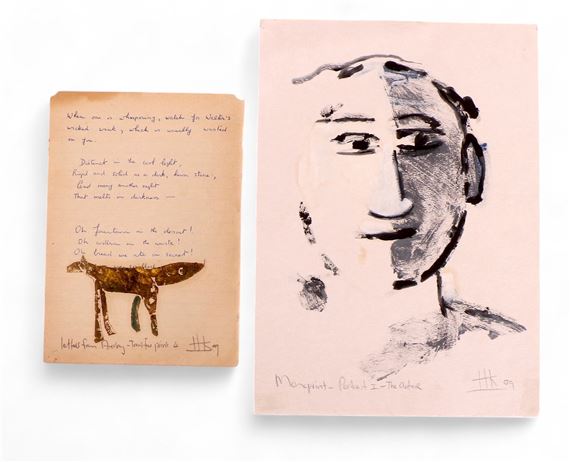 When one is whispering, watch for Walter's
wicked wink, which is usually wasted
on you.
Distinct in the last light,
Rigid and solid as a dark, stone,
And many another night
That melts in darkness —
Oh fountain in the desert!
Oh in the waste!
Oh bread we ate in secret!
letters from - Transfer print 4 HK 09
Monoprint - Portrait I - The Actor HK 09